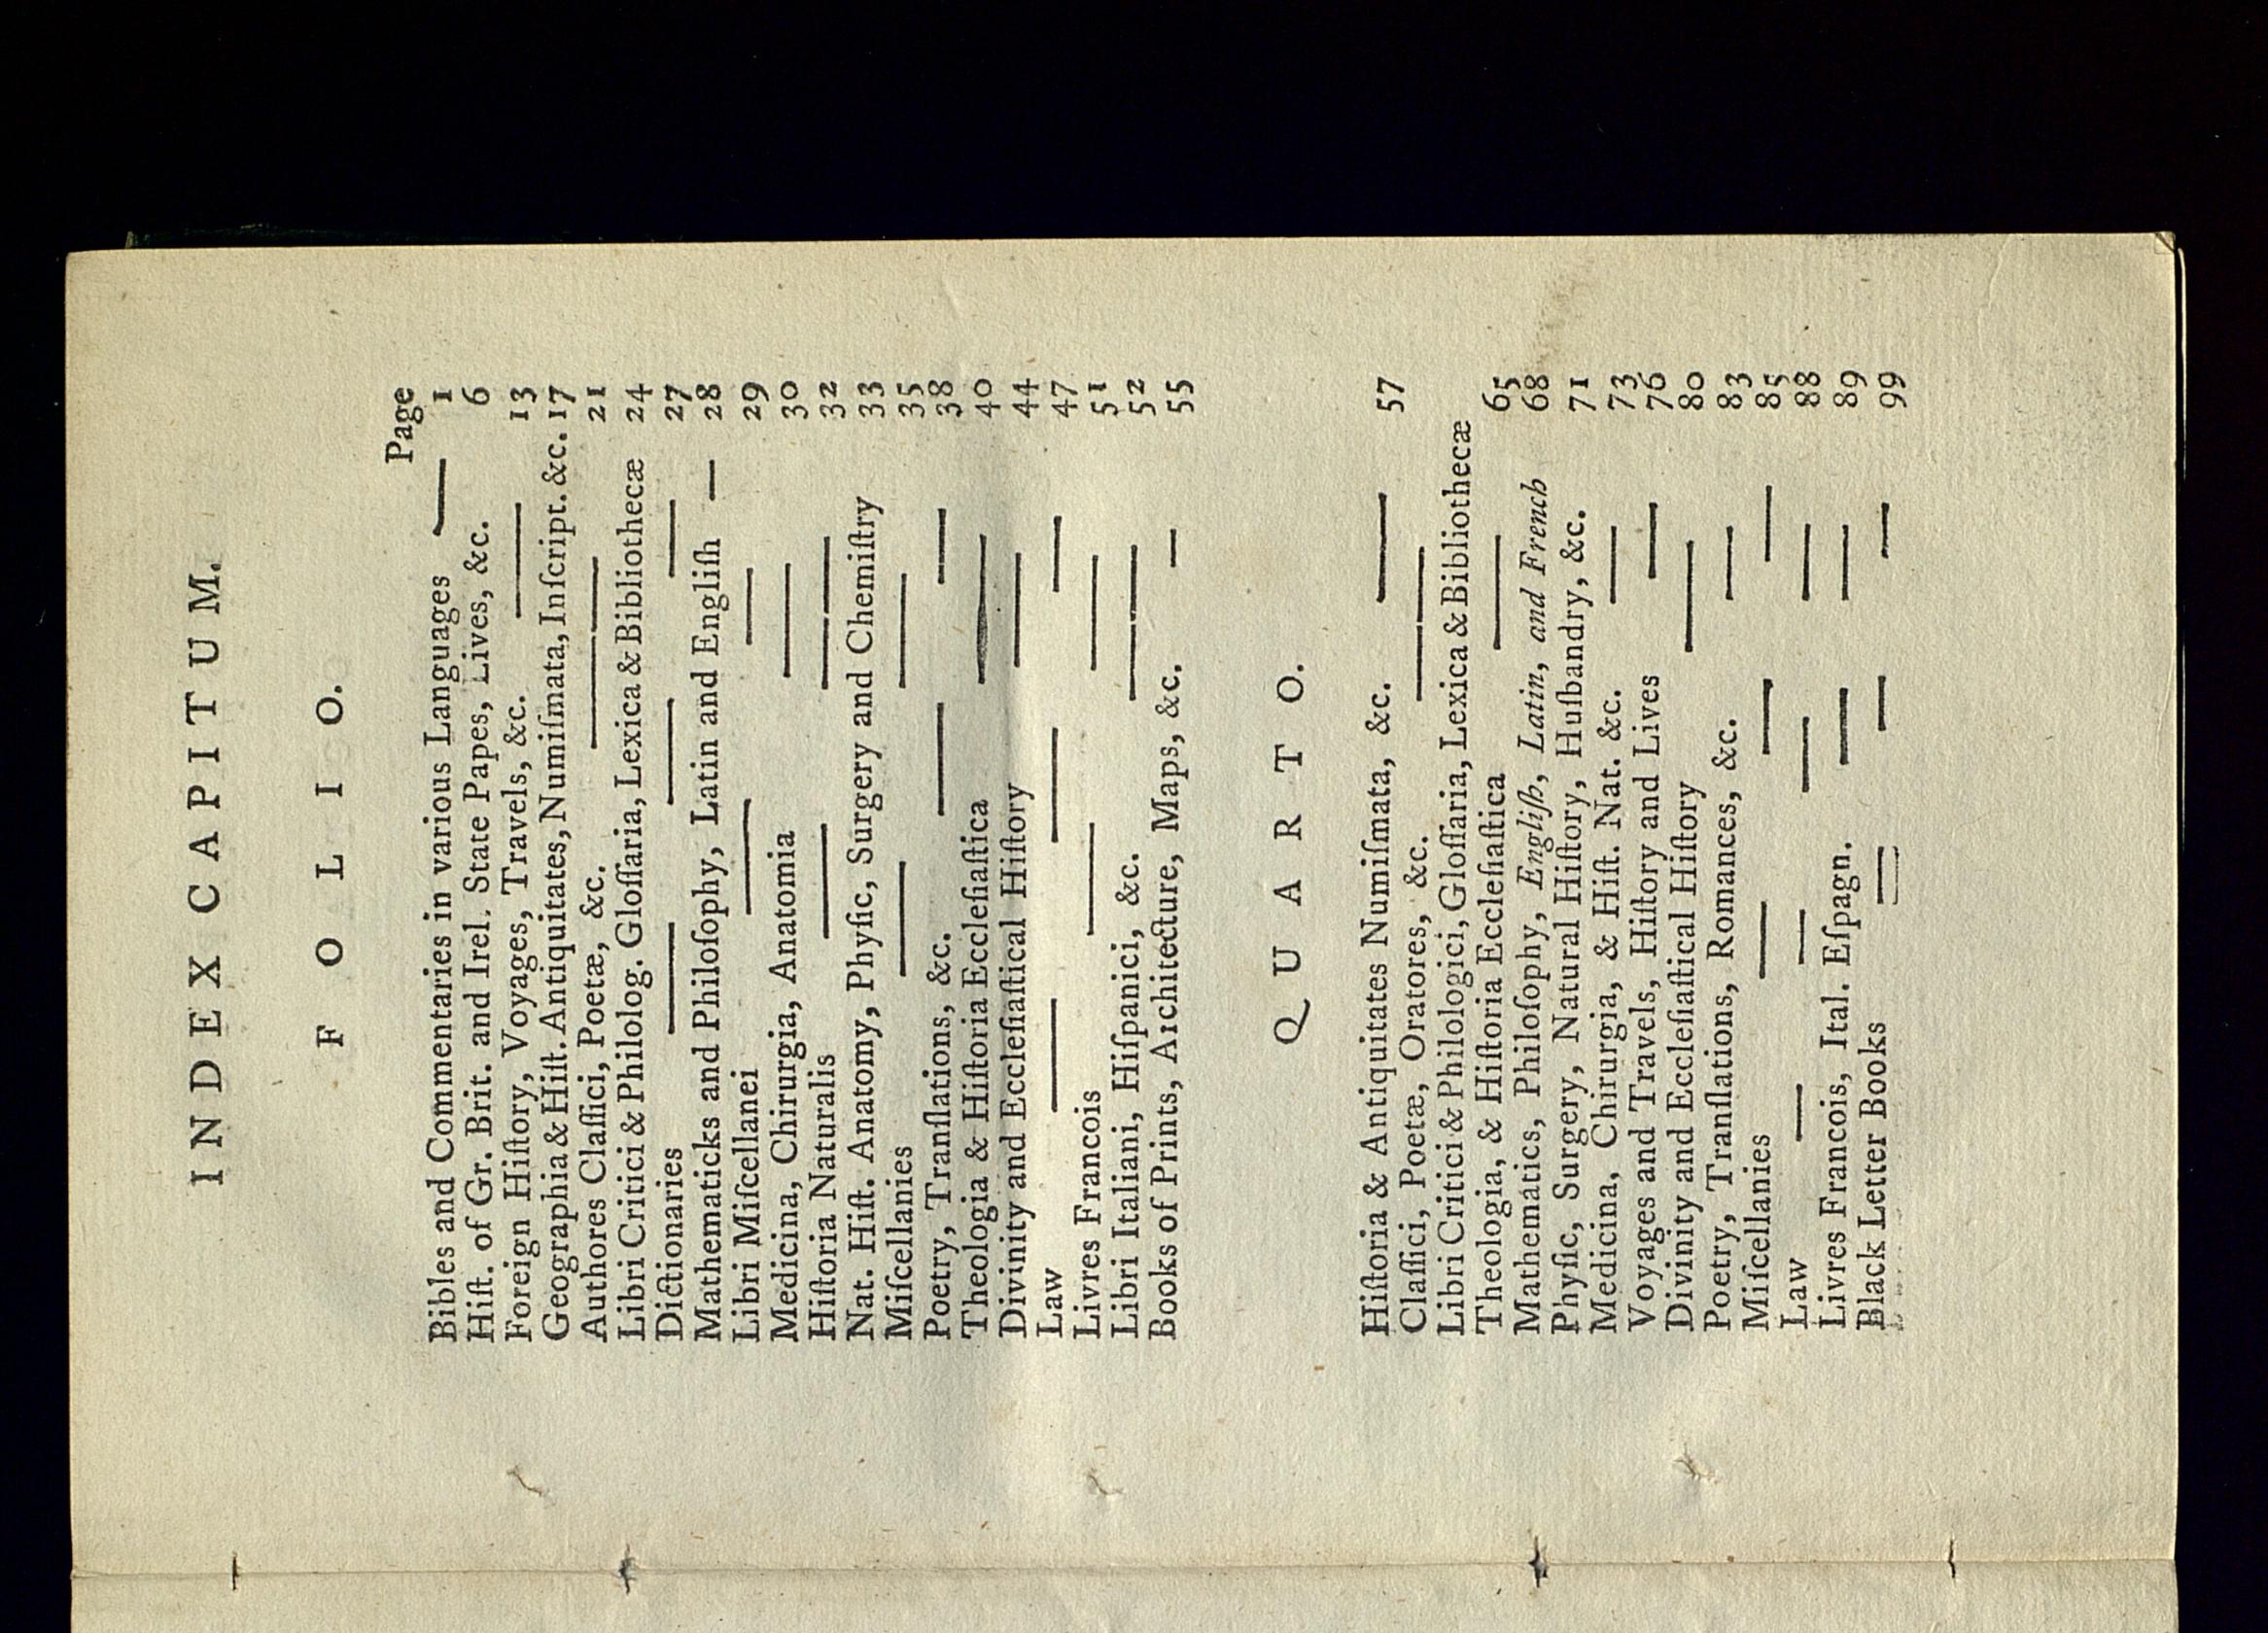 INDEX CAPITUM.
FOLIO.
Page
Bibles and Commentaries in various Languages — 1
Hiſt. of Gr. Brit. and Irel. State Papes, Lives, &c. 6
Foreign Hiſtory, Voyages, Travels, &c. — 13
Geographia & Hiſt. Antiquitates, Numiſmata, Inſcript. &c. 17
Authores Claſſici, Poetæ, &c. — — 21
Libri Critici & Philolog. Gloſſaria, Lexica & Bibliothecæ 24
Dictionaries — — — 27
Mathematicks and Philoſophy, Latin and Engliſh — 28
Libri Miſcellanei — — 29
Medicina, Chirurgia, Anatomia — 30
Hiſtoria Naturalis — — — 32
Nat. Hiſt. Anatomy, Phyſic, Surgery and Chemiſtry 33
Miſcellanies — — 35
Poetry, Tranſlations, &c. — — 38
Theologia & Hiſtoria Eccleſiaſtica — 40
Divinity and Eccleſiaſtical Hiſtory — 44
Law — — — 47
Livres Francois — — 51
Libri Italiani, Hiſpanici, &c. — — 52
Books of Prints, Architecture, Maps, &c. — 55
QUARTO.
Hiſtoria & Antiquitates Numiſmata, &c. — 57
Claſſici, Poetæ, Oratores, &c. — —
Libri Critici & Philologici, Gloſſaria, Lexica & Bibliothecæ
Theologia, & Hiſtoria Eccleſiaſtica — 65
Mathematics, Philoſophy, Engliſh, Latin, and French 68
Phyſic, Surgery, Natural Hiſtory, Huſbandry, &c. 71
Medicina, Chirurgia, & Hiſt. Nat. &c. — 73
Voyages and Travels, Hiſtory and Lives — 76
Divinity and Eccleſiaſtical Hiſtory — 80
Poetry, Tranſlations, Romances, &c. — 83
Miſcellanies — — — 85
Law — — — — 88
Livres Francois, Ital. Eſpagn. — — 89
Black Letter Books — — — 99